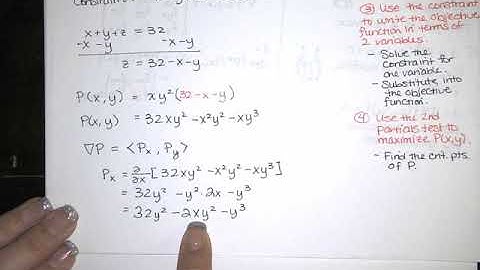 x+y+z = 32
-x -y -x-y
z = 32-x-y
P(x,y) = xy²(32-x-y)
P(x,y) = 32xy² - x²y² - xy³
∇P = ⟨Px , Py⟩
Px = ∂/∂x [32xy² - x²y² - xy³]
= 32y² - y²·2x - y³
= 32y² - 2xy² - y³
③ Use the constraint
to write the objective
function in terms of
2 variables.
- Solve the
constraint for
one variable.
- Substitute into
the objective
function.
④ Use the 2nd
Partials test to
maximize P(x,y).
- Find the crit. pts.
of P.